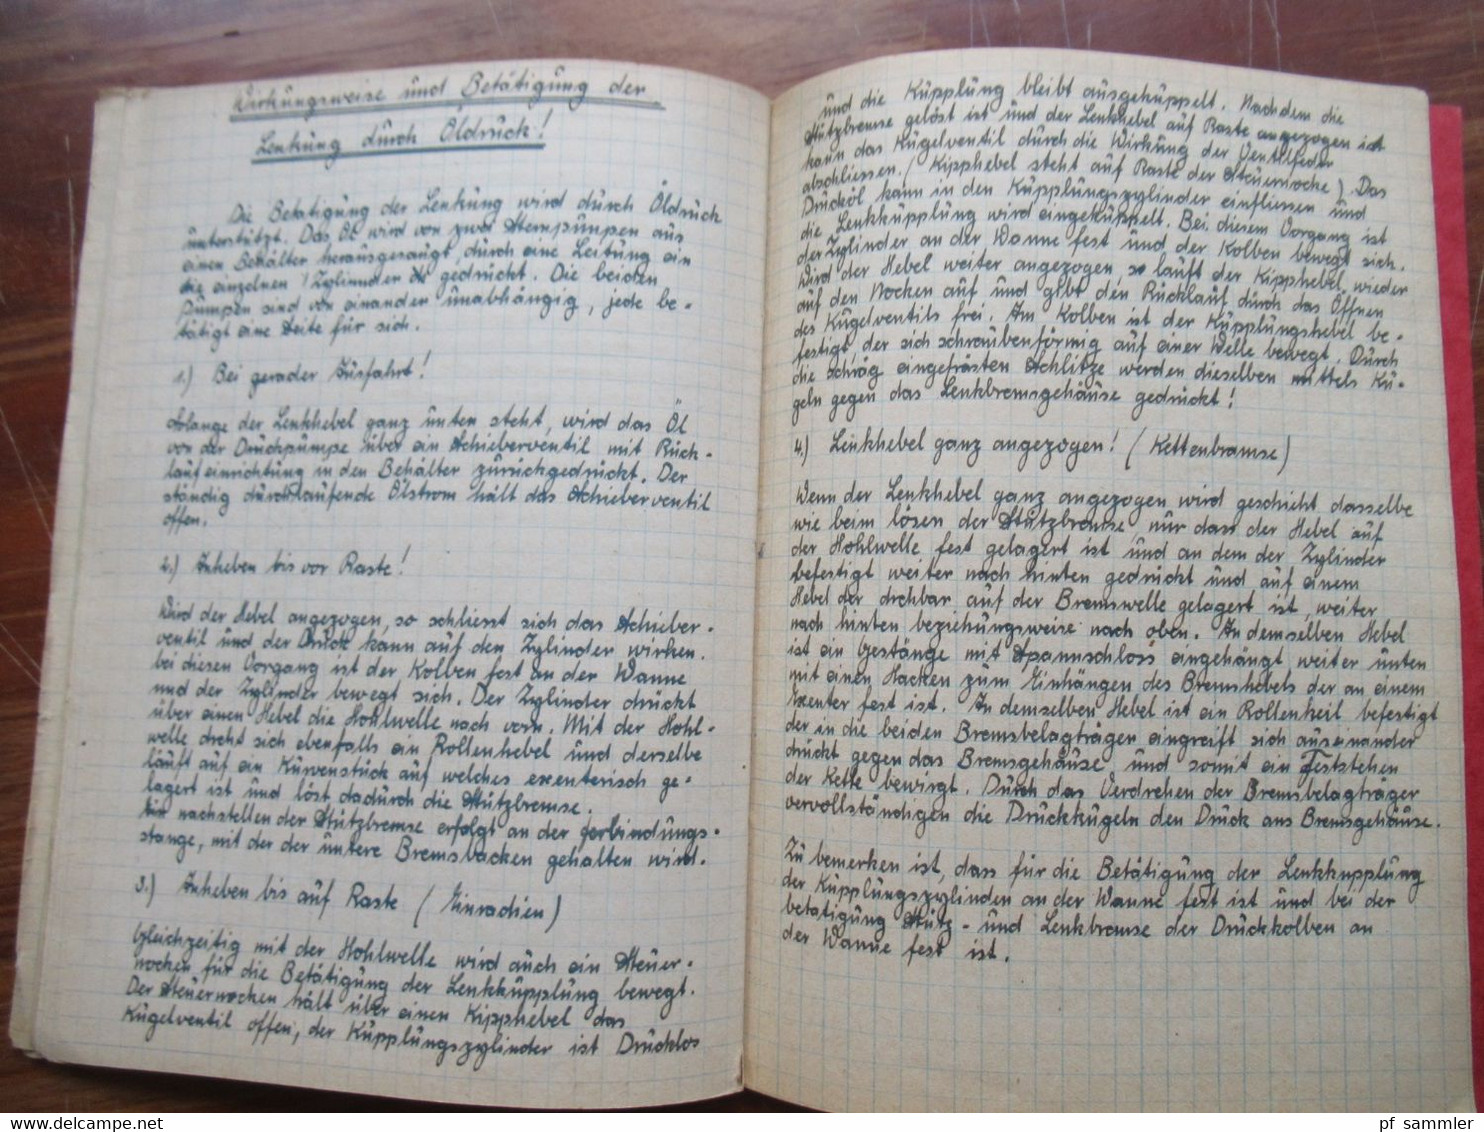 Wirkungsweise und Betätigung der
Lenkung durch Öldruck!
Die Betätigung der Lenkung wird durch Öldruck
unterstützt. Das Öl wird von zwei Stempumpen aus
einen Behälter herausgesaugt, durch eine Leitung in
die einzelnen Zylinnder gedrückt. Die beiden
Pumpen sind von einander unabhängig, jede be-
tätigt eine Seite für sich.
1.) Bei gerader Ausfahrt!
Solange der Lenkhebel ganz unten steht, wird das Öl
von der Druckpumpe über ein Schieberventil mit Rück-
laufeinrichtung in den Behälter zurückgedrückt. Der
ständig durchlaufende Ölstrom hält das Schieberventil
offen.
2.) Anheben bis vor Raste!
Wird der Hebel angezogen, so schliesst sich das Schieber-
ventil und der Druck kann auf den Zylinder wirken.
bei diesen Vorgang ist der Kolben fest an der Wanne
und der Zylinder bewegt sich. Der Zylinder drückt
über einen Hebel die Hohlwelle nach vorn. Mit der Hohl-
welle dreht sich ebenfalls ein Rollenhebel und derselbe
läuft auf ein Kurvenstück auf welches exenterisch ge-
lagert ist und löst dadurch die Stützbremse.
nachstellen der Stützbremse erfolgt an der Verbindungs-
stange, mit der der untere Bremsbacken gehalten wird.
3.) Anheben bis auf Raste (Einradien)
Gleichzeitig mit der Hohlwelle wird auch ein Steuer-
nocken für die Betätigung der Lenkkupplung bewegt.
Der Steuernocken hält über einen Kipphebel das
Kugelventil offen, der Kupplungszylinder ist Drucklos
und die Kupplung bleibt ausgekuppelt. Nachdem die
Stützbremse gelöst ist und der Lenkhebel auf Raste angezogen ist
kann das Kugelventil durch die Wirkung der Ventilfeder
abschliessen. (Kipphebel steht auf Raste der Steuernocke) Das
Drucköl kann in den Kupplungszylinder einfliessen und
die Lenkkupplung wird eingekuppelt. Bei diesem Vorgang ist
der Zylinder an der Wanne fest und der Kolben bewegt sich.
Wird der Hebel weiter angezogen, so läuft der Kipphebel wieder
auf den Nocken auf und gibt den Rücklauf durch das Öffnen
des Kugelventils frei. Am Kolben ist der Kupplungshebel be-
festigt, der sich schraubenförmig auf einer Welle bewegt. Durch
die schräg eingefrästen Schlitze werden dieselben mittels Ku-
geln gegen das Lenkbremsgehäuse gedrückt!
4.) Lenkhebel ganz angezogen! (Kettenbramse)
Wenn der Lenkhebel ganz angezogen wird geschicht dasselbe
wie beim lösen der Stützbremse, nur dass der Hebel auf
der Hohlwelle fest gelagert ist und an dem der Zylinder
befestigt weiter nach hinten gedrückt und auf einem
Hebel der drehbar auf der Bremswelle gelagert ist, weiter
nach hinten beziehungsweise nach oben. An demselben Hebel
ist ein Gestänge mit Spannschloss eingehängt weiter unten
mit einen Hacken zum Einhängen des Bremshebels der an einem
Exenter fest ist. An demselben Hebel ist ein Rollenkeil befestigt
der in die beiden Bremsbelagträgen eingreift sich auseinander
drückt gegen das Bremsgehäuse und somit ein Feststehen
der Kette bewirgt. Durch das Verdrehen der Bremsbelagträger
vervollständigen die Druckkugeln den Druck ans Bremsgehäuse.
Zu bemerken ist, dass für die Betätigung der Lenkkupplung
der Kupplungszylinden an der Wanne fest ist und bei der
betatigung Stütz- und Lenkbremse der Druckkolben an
der Wanne fest ist.
pf sammler